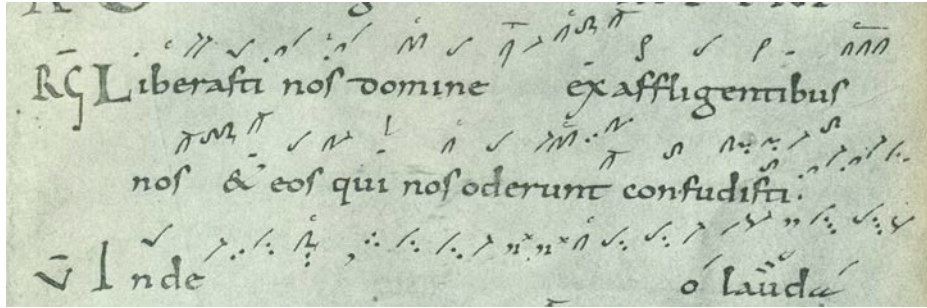 RG Liberasti nos domine ex affligentibus
nos & eos qui nos oderunt confudisti.
V Inde o lauda